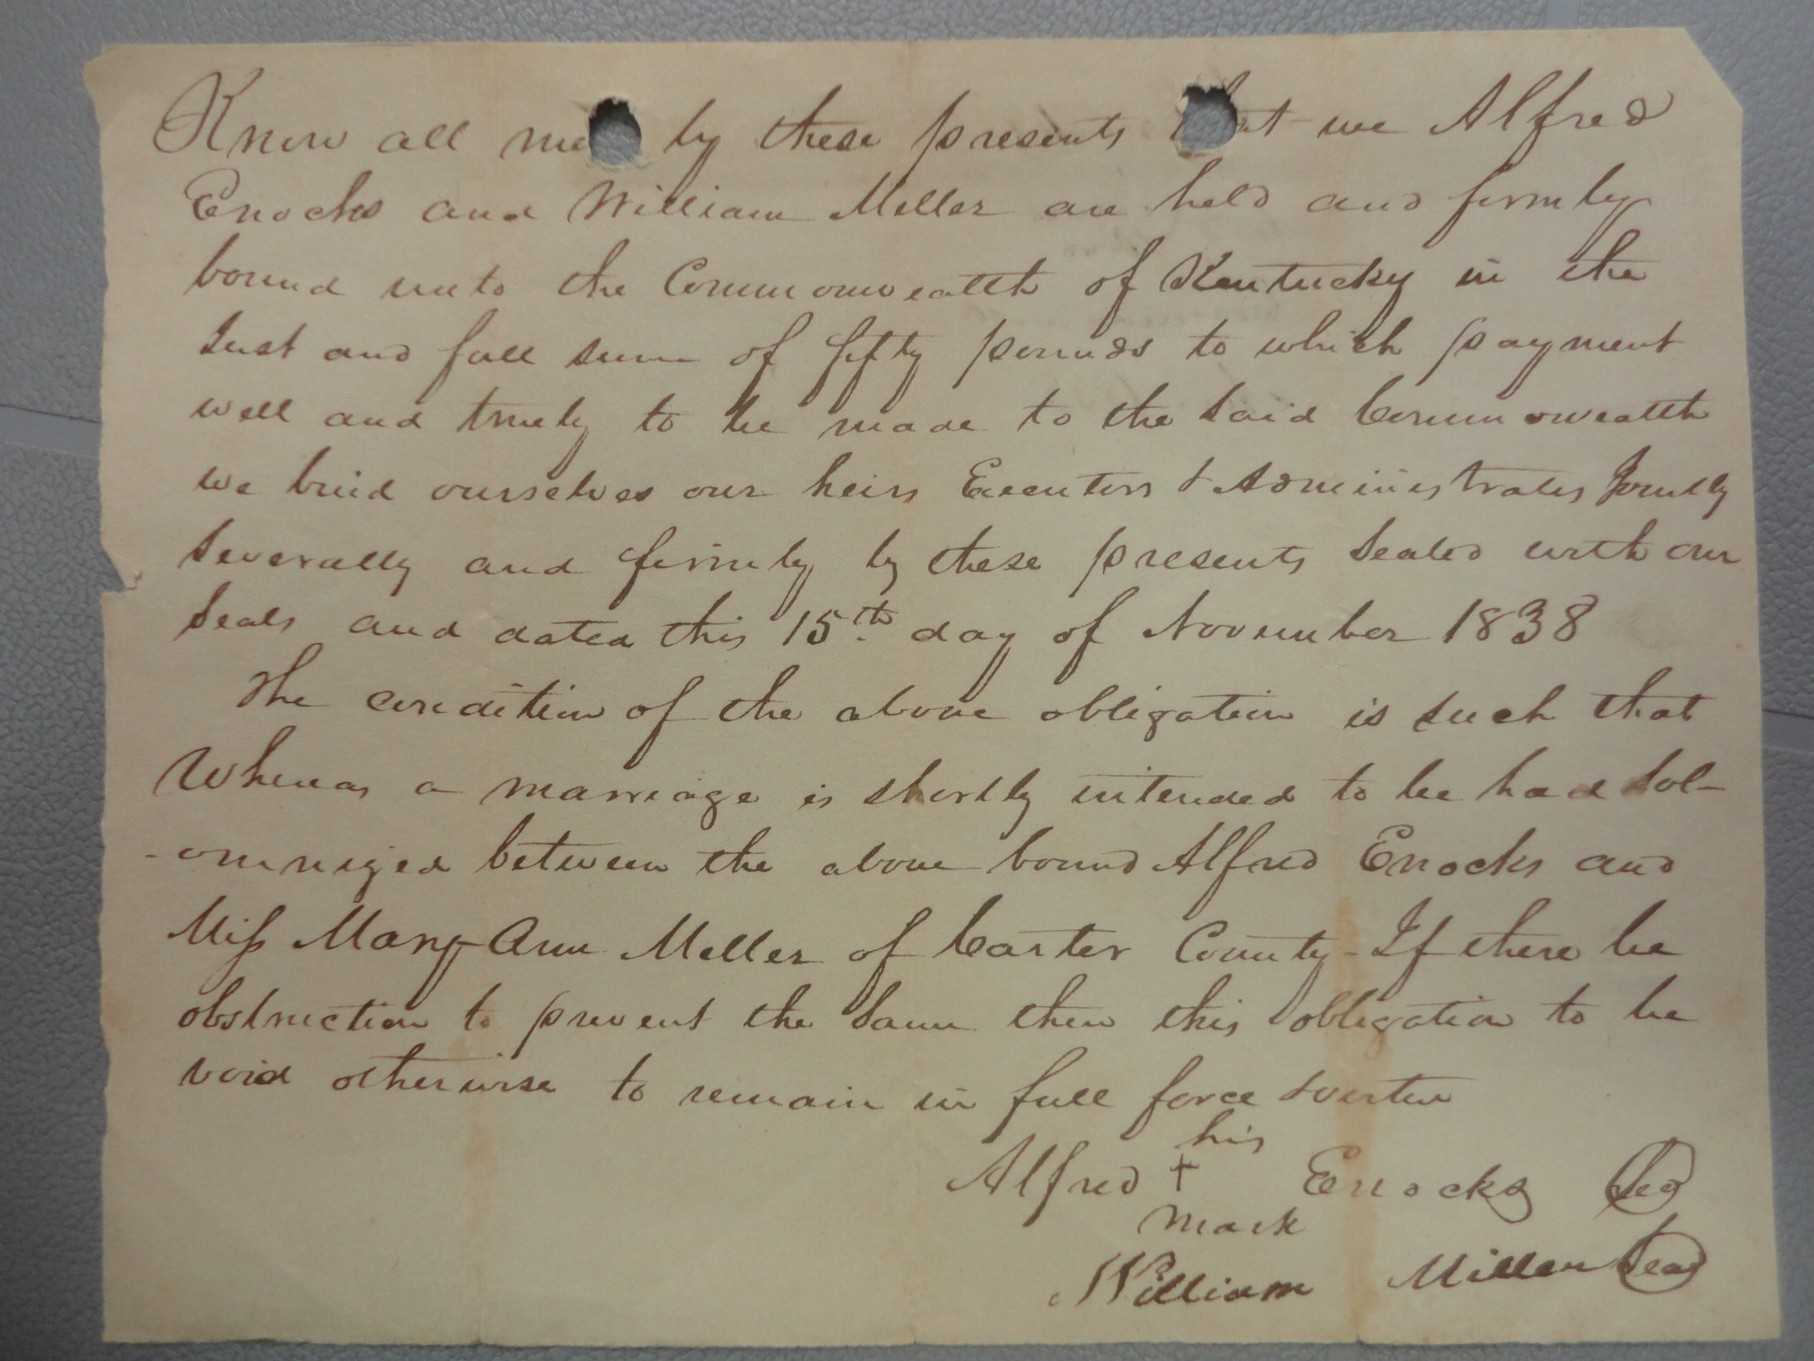 Know all men by these presents that we Alfred
Enocks and William Miller are held and firmly
bound unto the Commonwealth of Kentucky in the
Just and full sum of fifty pounds to which payment
well and truely to be made to the said Commonwealth
we bind ourselves our heirs Executors & Administrators Jointly
severally and firmly by these presents sealed with our
seals and dated this 15th day of November 1838
The condition of the above obligation is such that
Whereas a marriage is shortly intended to be had sol-
-omnized between the above bound Alfred Enocks and
Miss Mary Ann Miller of Carter County - If there be
obstruction to prevent the same then this obligation to be
void otherwise to remain in full force & vertue
his
Alfred + Enocks Seal
mark
William Miller Seal